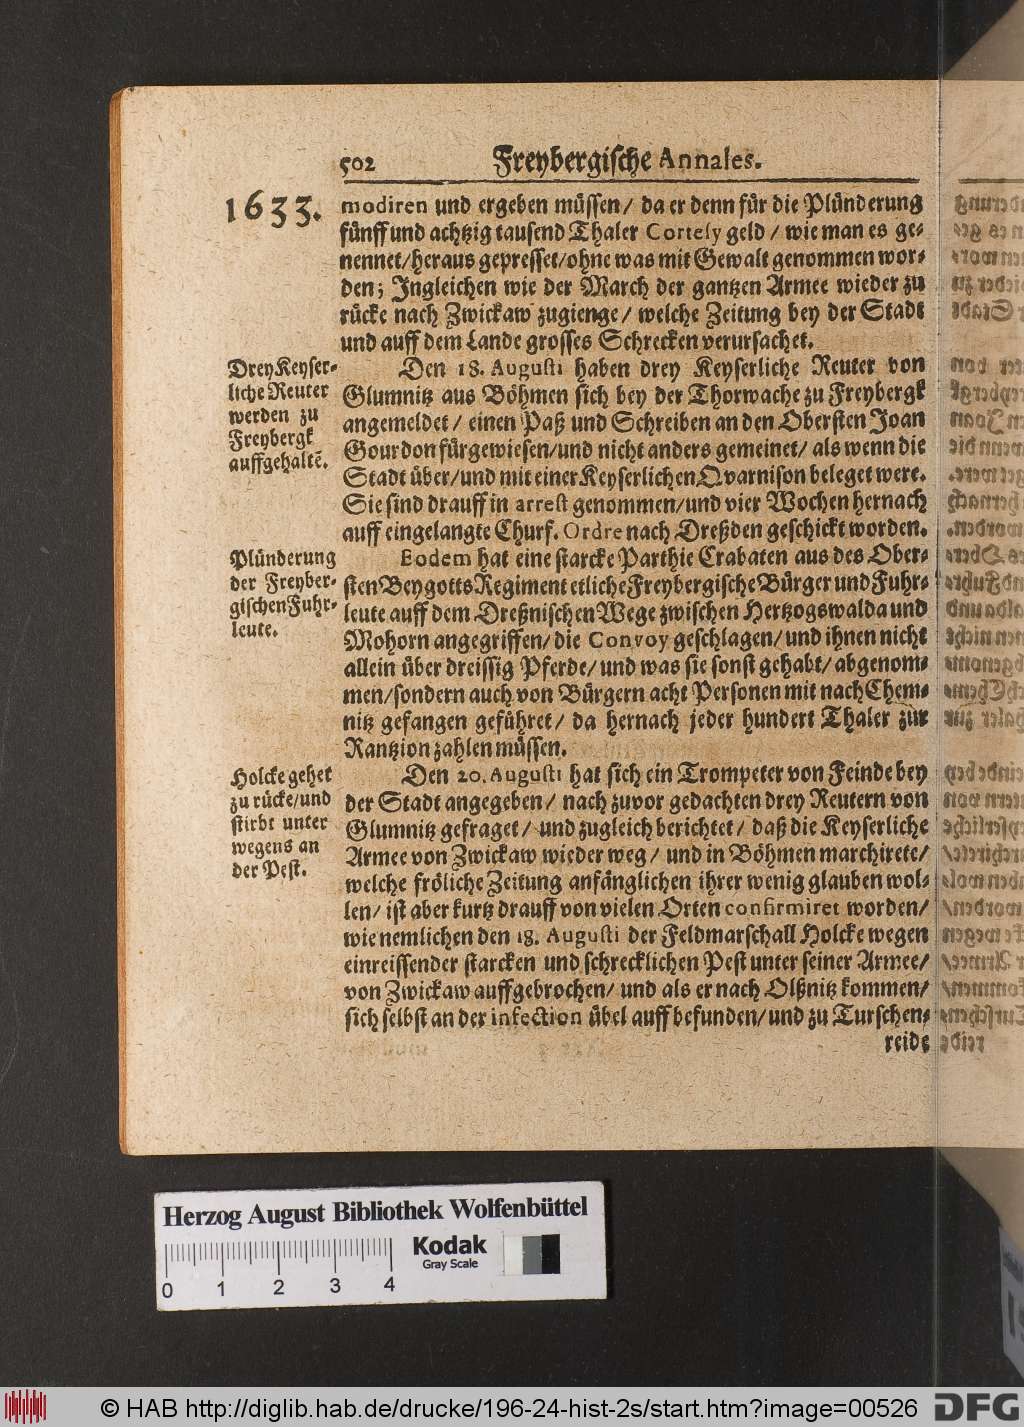 502 Freybergische Annales.
1633.
modiren und ergeben müssen/ da er denn für die Plünderung
fünff und achtzig tausend Thaler Cortely geld / wie man es ge-
nennet/heraus gepresset/ohne was mit Gewalt genommen wor-
den; Ingleichen wie der March der gantzen Armee wieder zu
rücke nach Zwickaw zugienge/ welche Zeitung bey der Stadt
und auff dem Lande grosses Schrecken verursachet.
Drey Keyser-
liche Reuter
werden zu
Freybergk
auffgehaltẽ.
Den 18. Augusti haben drey Keyserliche Reuter von
Glumnitz aus Böhmen sich bey der Thorwache zu Freybergk
angemeldet / einen Paß und Schreiben an den Obersten Joan
Gourdon fürgewiesen/und nicht anders gemeinet/ als wenn die
Stadt über/und mit einer Keyserlichen Qvarnison beleget were.
Sie sind drauff in arrest genommen/und vier Wochen hernach
auff eingelangte Churf. Ordre nach Dreßden geschickt worden.
Plünderung
der Freyber-
gischen Fuhr-
leute.
Eodem hat eine starcke Parthie Crabaten aus des Ober-
sten Beygotts Regiment etliche Freybergische Bürger und Fuhr-
leute auff dem Dreßnischen Wege zwischen Hertzogswalda und
Mohorn angegriffen/ die Convoy geschlagen/ und ihnen nicht
allein über dreissig Pferde/ und was sie sonst gehabt/ abgenom-
men/sondern auch von Bürgern acht Personen mit nach Chem-
nitz gefangen geführet/ da hernach jeder hundert Thaler zur
Rantzion zahlen müssen.
Holcke gehet
zu rücke/und
stirbt unter
wegens an
der Pest.
Den 20. Augusti hat sich ein Trompeter von Feinde bey
der Stadt angegeben/ nach zuvor gedachten drey Reutern von
Glumnitz gefraget/ und zugleich berichtet/ daß die Keyserliche
Armee von Zwickaw wieder weg/ und in Böhmen marchirete/
welche fröliche Zeitung anfänglichen ihrer wenig glauben wol-
len/ ist aber kurtz drauff von vielen Orten confirmiret worden/
wie nemlichen den 18. Augusti der Feldmarschall Holcke wegen
einreissender starcken und schrecklichen Pest unter seiner Armee/
von Zwickaw auffgebrochen/ und als er nach Olßnitz kommen/
sich selbst an der infection übel auff befunden/und zu Turschen-
reide
Herzog August Bibliothek Wolfenbüttel
Kodak
Gray Scale
0 1 2 3 4
© HAB http://diglib.hab.de/drucke/196-24-hist-2s/start.htm?image=00526
DFG